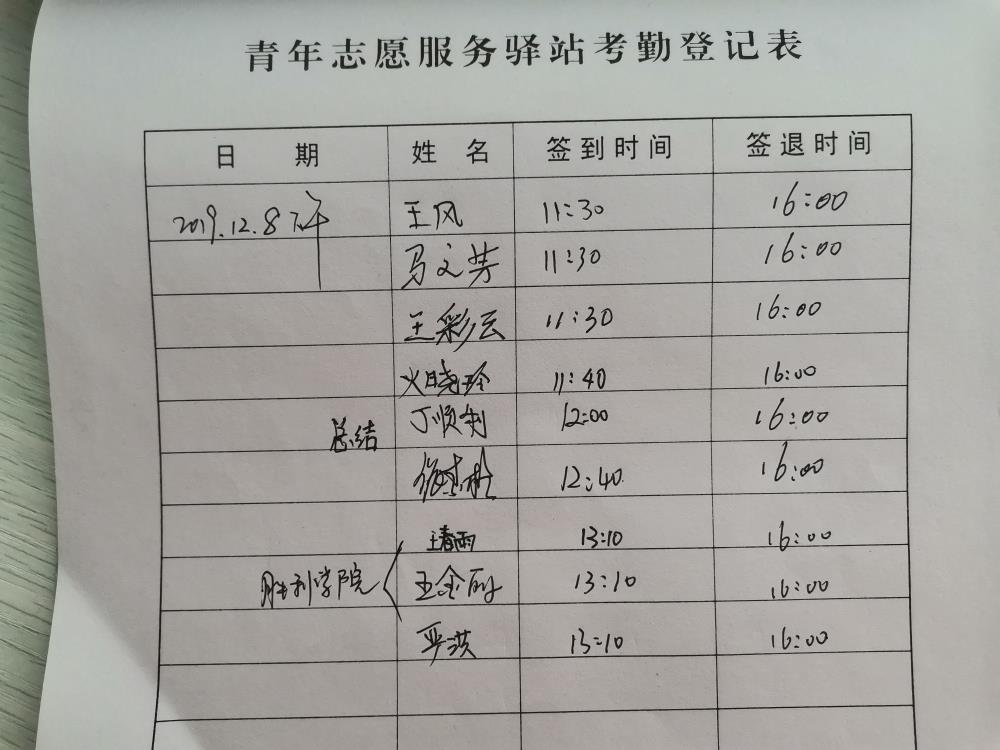 青年志愿服务驿站考勤登记表
日期 姓名 签到时间 签退时间
2019.12.8下午 王风 11:30 16:00
马文芳 11:30 16:00
王彩云 11:30 16:00
火晓玲 11:40 16:00
总结 丁顺利 12:00 16:00
12:40 16:00
王春雨 13:10 16:00
胜利学院 王金丽 13:10 16:00
严洪 13:10 16:00